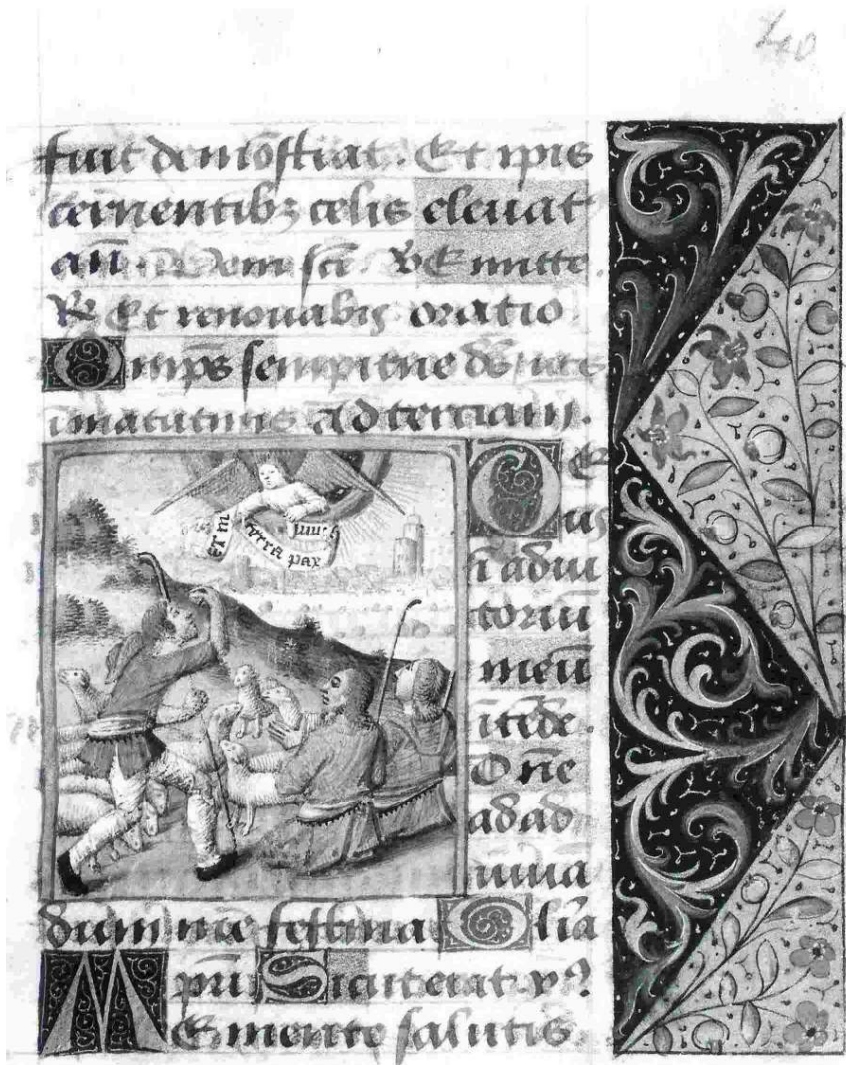 40
fuit demōstrat. Et ipis
cernentibꝫ celis elevat
añ. Veni sc̄e. ℣ Emitte.
℟ Et renovabis oratio
Omips sempitne ds̄ ut s
i matutinis Ad terciam.
et in terra pax
De
us
ī adiu
toriū
meū
itēde.
Dn̄e
ad ad
iuva
dum me festina Glīa
pr̄i Sicut erat
Memento salutis